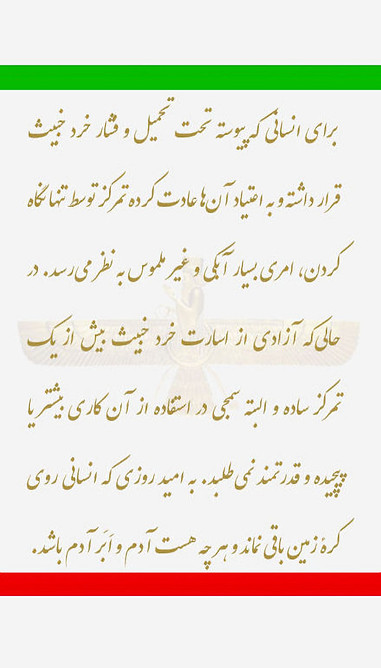 برای انسانی که پیوسته تحت تحمیل و فشار خرد خبیث
قرار داشته و به اعتیاد آن‌ها عادت کرده تمرکز توسط تنها نگاه
کردن، امری بسیار آبکی و غیر ملموس به نظر می‌رسد. در
حالی‌که آزادی از اسارت خرد خبیث بیش از یک
تمرکز ساده و البته سمجی در استفاده از آن کاری بیشتر یا
پیچیده و قدرتمند نمی‌طلبد. به امید روزی که انسانی روی
کرهٔ زمین باقی نماند و هر چه هست آدم و اَبَر آدم باشد.